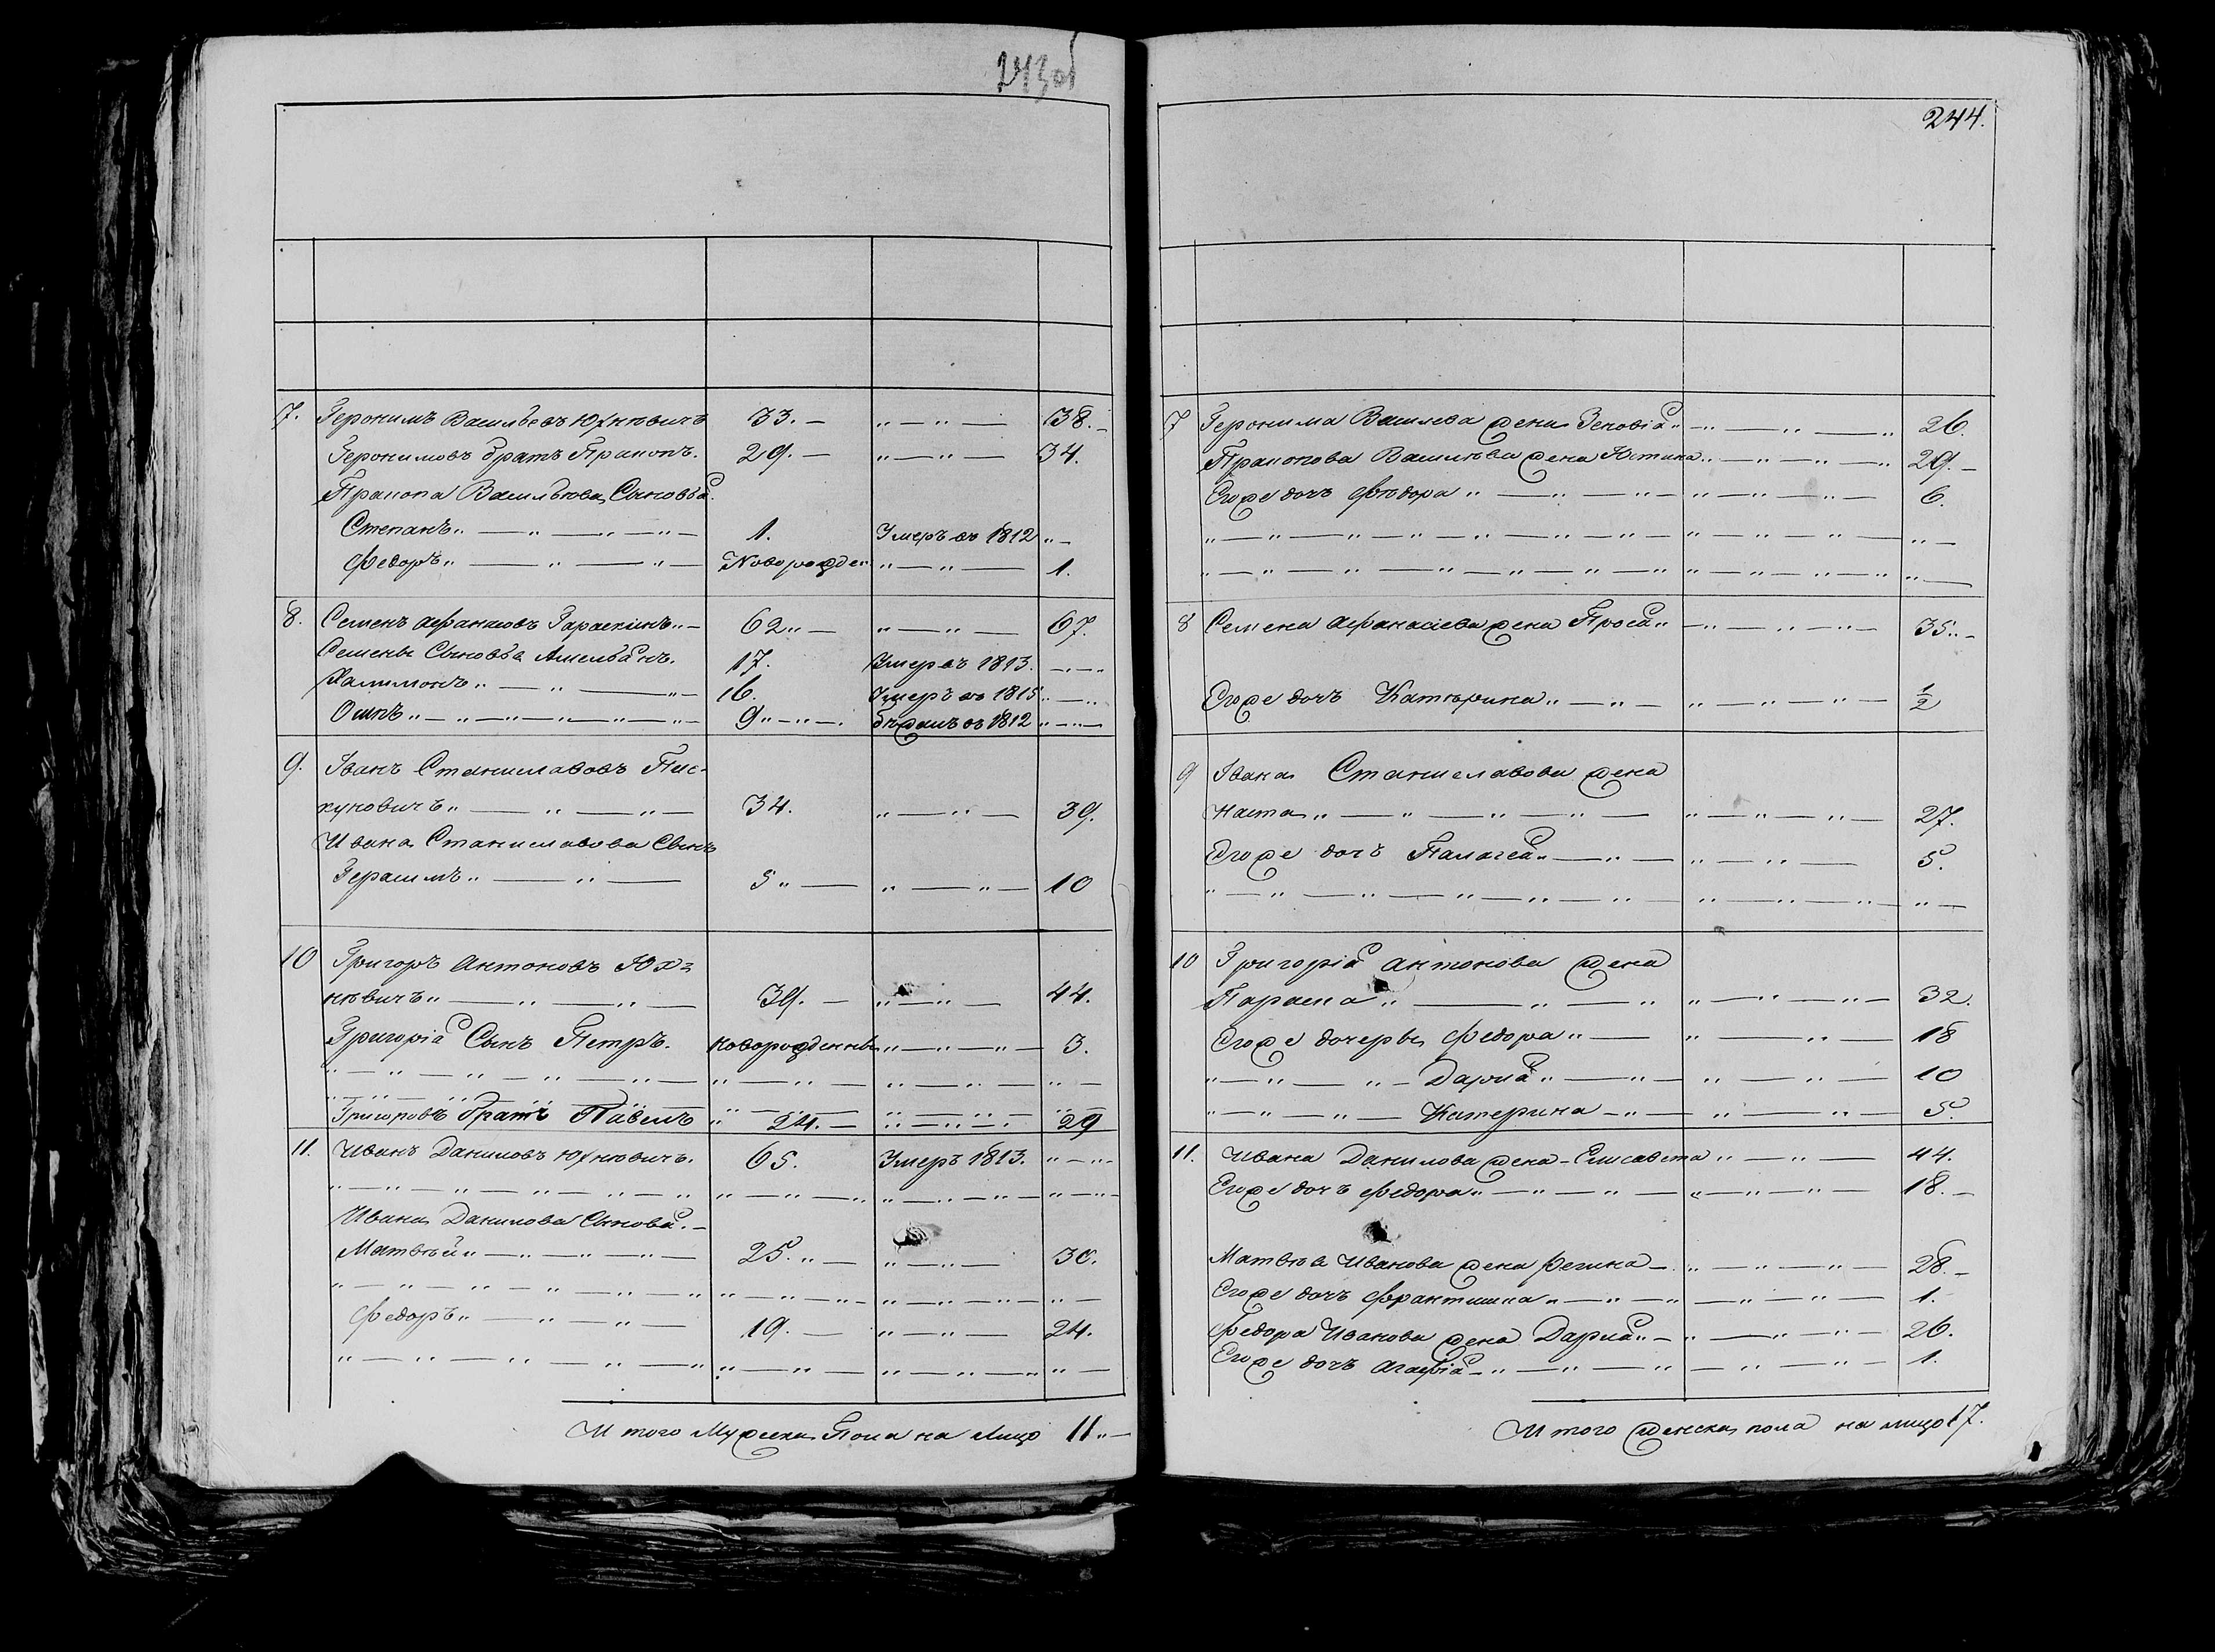 243об
7. Геронимъ Васильевъ Юхнювичъ 33. — „ — „ — 38. —
Геронимовъ братъ Пракопъ. 29. — „ — „ — 34.
Пракопа Васильюва Сыновья.
Степанъ „ — „ — „ — „ — 1. Умеръ въ 1812 „ —
Федоръ „ — „ — „ — Новорожден „ — „ — 1.
8. Семенъ Афанасовъ „ — 62 „ — „ — „ — 67.
Семены Сыновья Амельянъ. 17. Умеръ въ 1813. — „ — „
Халимонъ „ — „ — „ — 16. Умеръ въ 1815 „ — „
Осипъ „ — „ — „ — „ — „ — „ — 9 „ — „ — бѣжалъ въ 1812 „ — „ —
9. Іванъ Станиславовъ Пис-
куновичъ „ — „ — „ — 34. „ — „ — 39.
Ивана Станиславова Сынъ
Герасимъ „ — „ — 5 „ — „ — „ — 10
10 Григоръ Антоновъ Юх=
нѣвичъ „ — „ — „ — 39. — „ — „ — 44.
Григорія Сынъ Петръ. новорожденны „ — „ — „ — 3.
„ — „ — „ — „ — „ — „ — „ — „ — „ — „ — „ —
Григоровъ братъ Павелъ „ 24. — „ — „ — „ 29
11. Иванъ Даниловъ Юхнювичъ. 65. Умеръ 1813. „ — „ —
„ — „ — „ — „ — „ — „ „ — „ — „ „ — „ — „ — „ — „ —
Ивана Данилова Сыновья. —
Матвѣй „ — „ — „ — „ — 25. „ — „ — „ — 30.
„ — „ — „ — „ — „ — „ „ — „ — „ — „ — „ — „ — „ —
Федоръ „ — „ — „ — 19. — „ — „ — 24.
„ — „ — „ — „ — „ „ — „ — „ — „ — „ „ —
И того Мужеска Пола на лицо 11 „ —
244.
7 Геронима Васильева жена Зеновія „ — „ — „ — „ 26.
Пракопова Васильюва жена Юстина „ — „ — „ — „ 29. —
Егоже дочъ Фюдора „ — „ — „ — „ — „ — „ — 6.
„ — „ — „ — „ — „ — „ — „ — „ — „ — „ — „ — „ —
„ — „ — „ — „ — „ — „ — „ — „ — „ — „ — „ „ —
8 Семена Афанасіева жена Прося „ — „ — „ — „ — 35 „ —
Егоже дочъ Катюрина „ — „ — „ — „ — „ — 1/2
9 Івана Станиславова жена
Наста „ — „ — „ — „ — „ — „ — „ — 27.
Егоже дочъ Палагея „ — „ — „ — „ — 5.
„ — „ — „ — „ — „ — „ — „ — „ — „ — „ —
10 Григорія Антонова жена
Параска „ — „ — „ „ — „ — „ — 32.
Егоже дочеры Федора „ — „ — „ — 18
„ — „ — „ — Дарія „ — „ — „ — „ — 10
„ — „ — „ — Катерина — „ — „ — „ — 5.
11. Ивана Данилова жена — Елисавета „ — „ — 44.
Егоже дочъ Федора „ — „ — „ — „ — „ — „ — 18. —
Матвюя Иванова жена Регина — „ — „ — „ — 28. —
Егоже дочъ Франтишка „ — „ — „ — „ — „ — 1.
Федора Иванова жена Дарія „ — „ — „ — „ — 26.
Егоже дочъ Агафія — „ — „ — „ — „ — „ — 1.
И того женска пола на лицо 17.